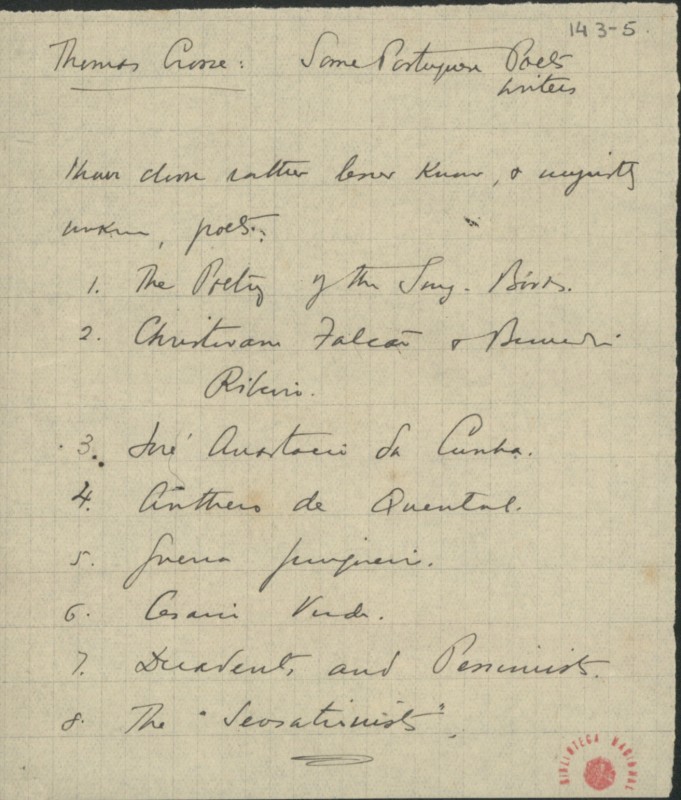 143-5.
Thomas Crosse: Some Portuguese Poets
writers
I have chosen rather lesser known, & unjustly
unknown, poets:
1. The Poetry of the Song-Books.
2. Christovam Falcão & Bernardim
Ribeiro.
3. José Anastacio da Cunha.
4. Anthero de Quental.
5. Guerra Junqueiro.
6. Cesario Verde.
7. Decadents and Pessimists.
8. The "Sensationists".
BIBLIOTECA NACIONAL